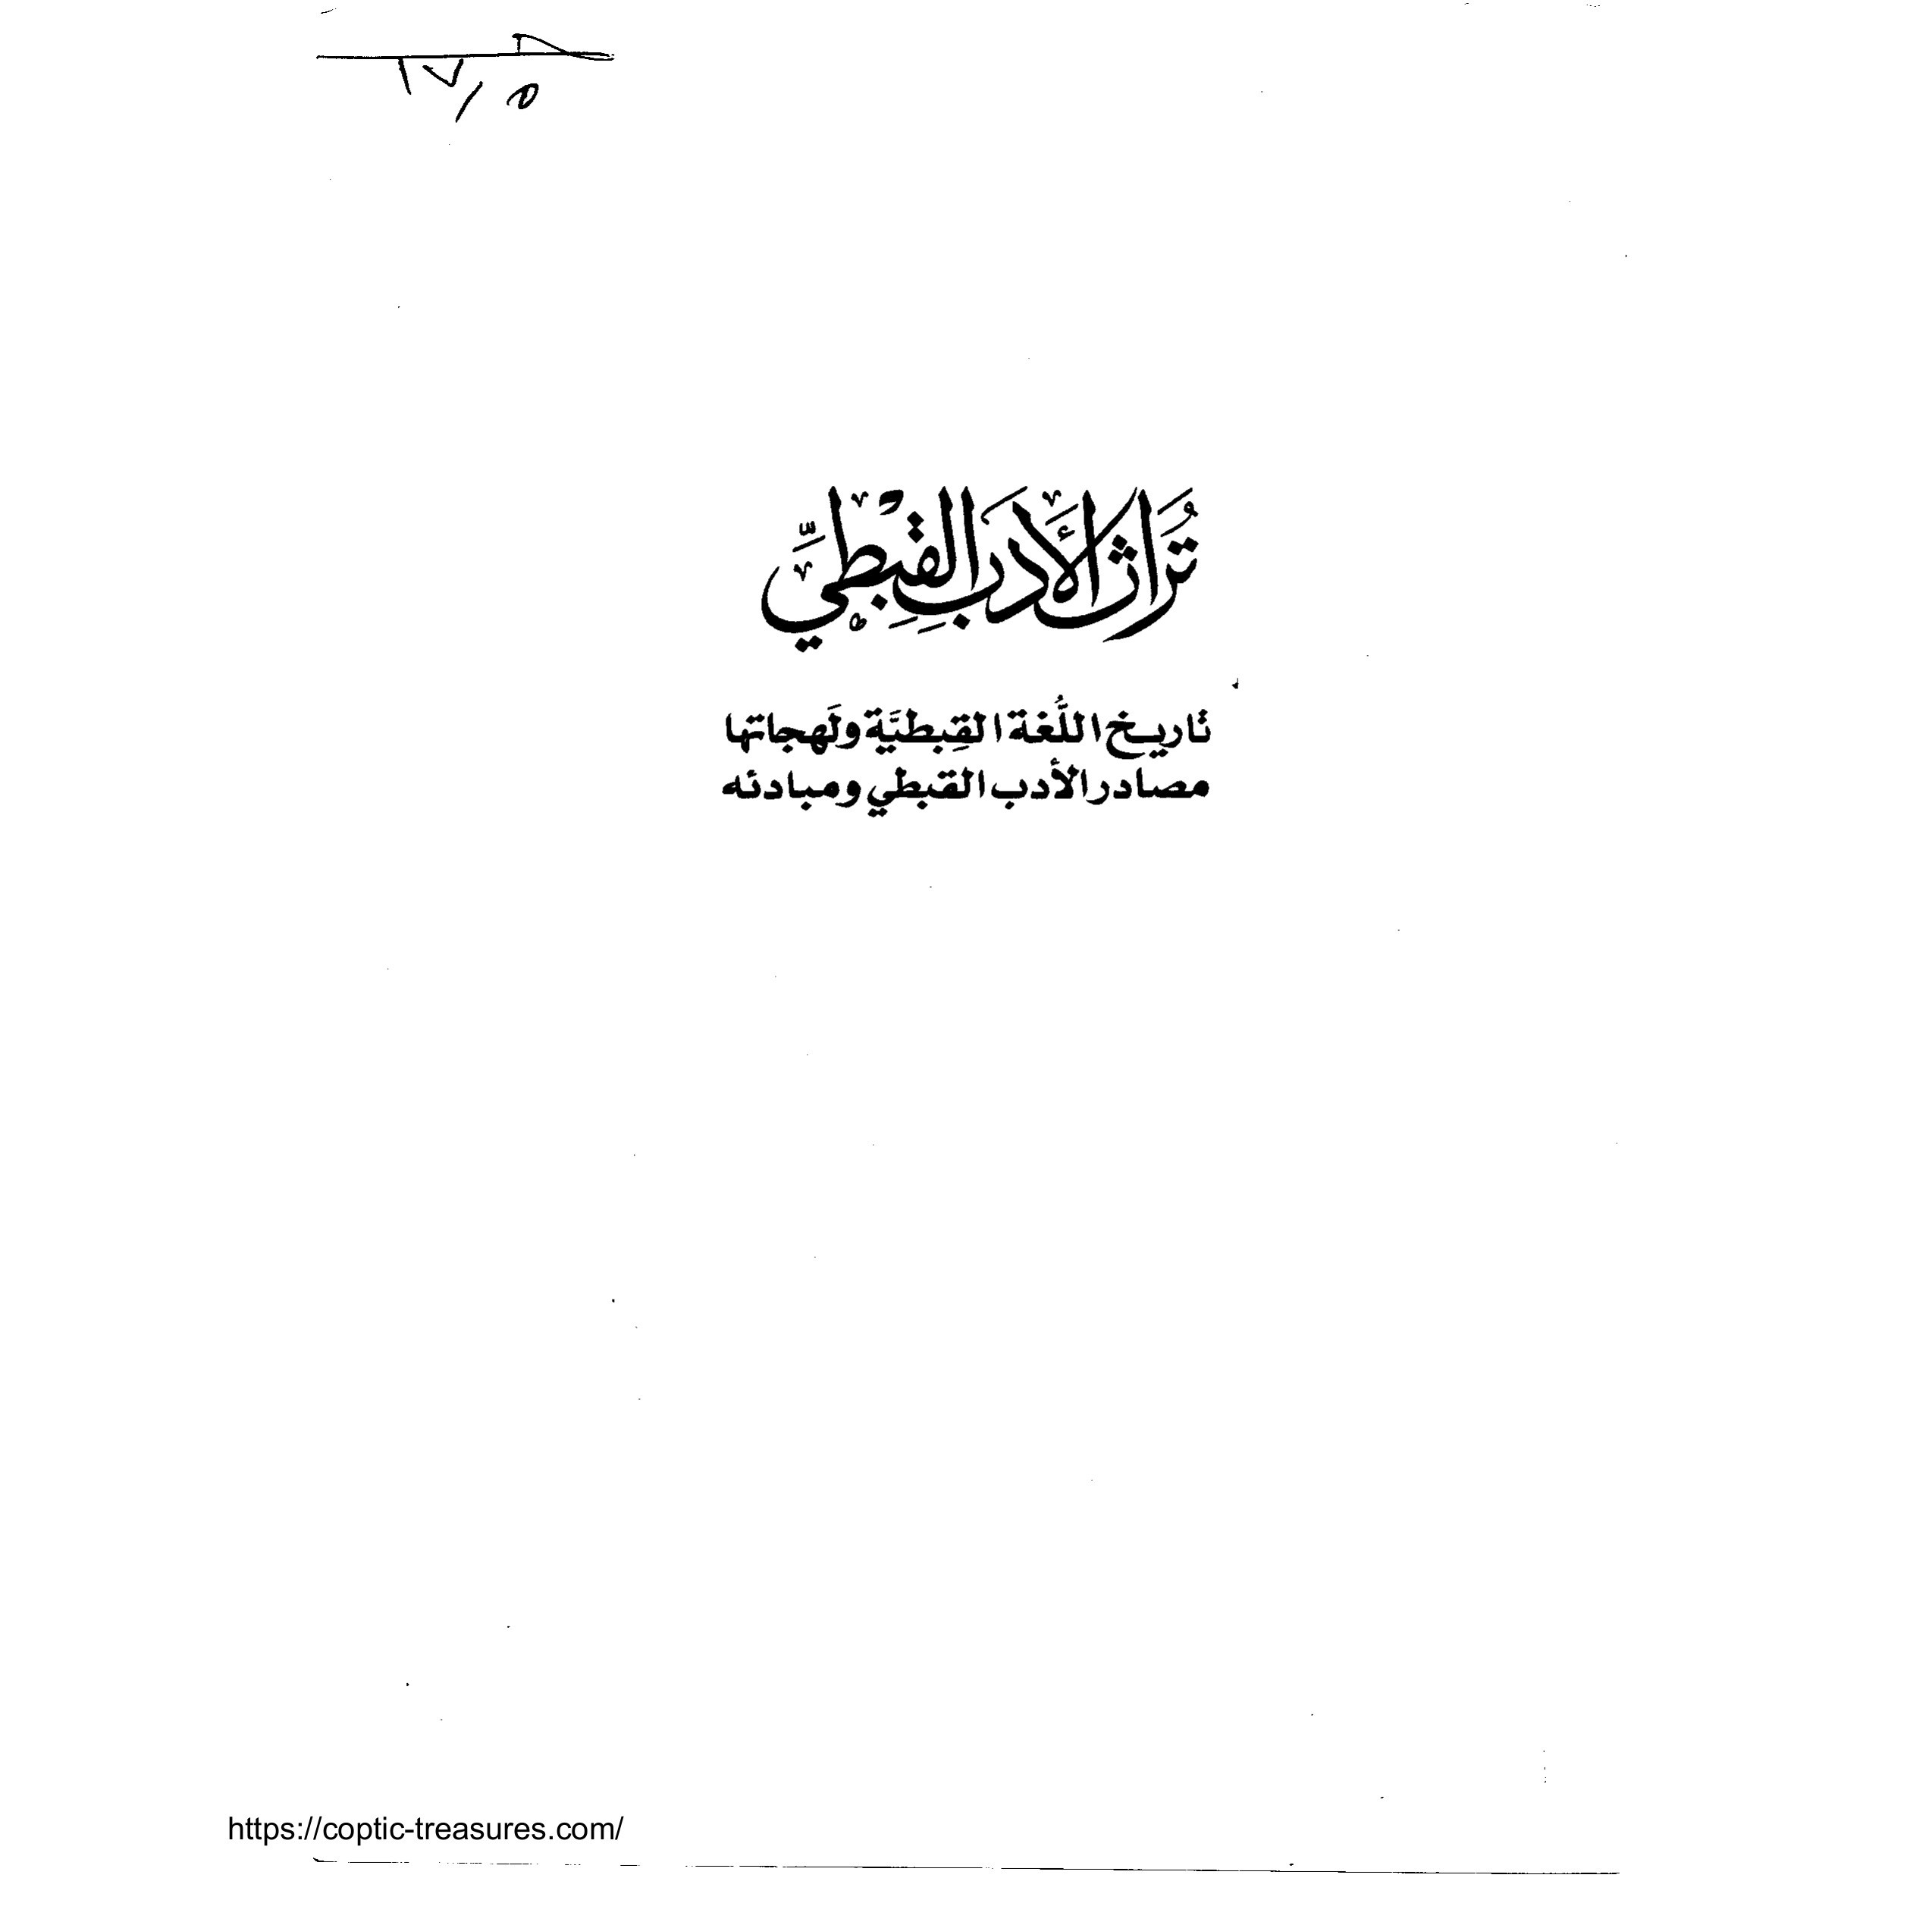 تُرَاثُ الْأَدَبِ الْقِبْطِيِّ
تاريخ اللُّغة القِبطيَّة ولَهجاتها
مصادر الأدب القبطي ومبادئه
https://coptic-treasures.com/